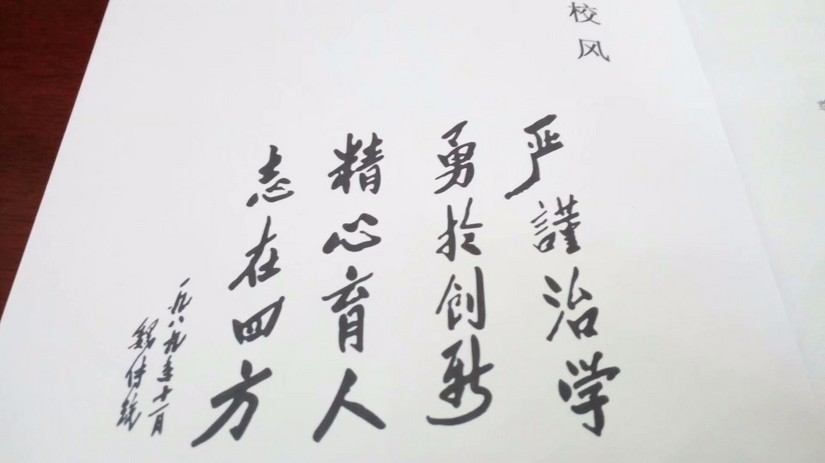 校风
严謹治学
勇於创新
精心育人
志在四方
一九八九年十一月
魏传统